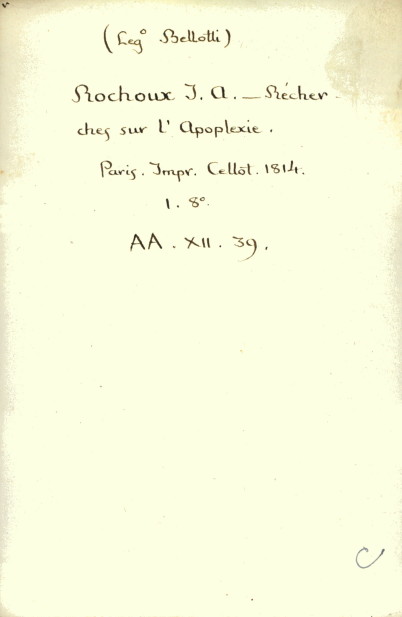 (Leg° Bellotti)
Rochoux J. A. — Récher-
ches sur l' Apoplexie.
Paris. Impr. Cellot. 1814.
1. 8°.
AA. XII. 39.
C